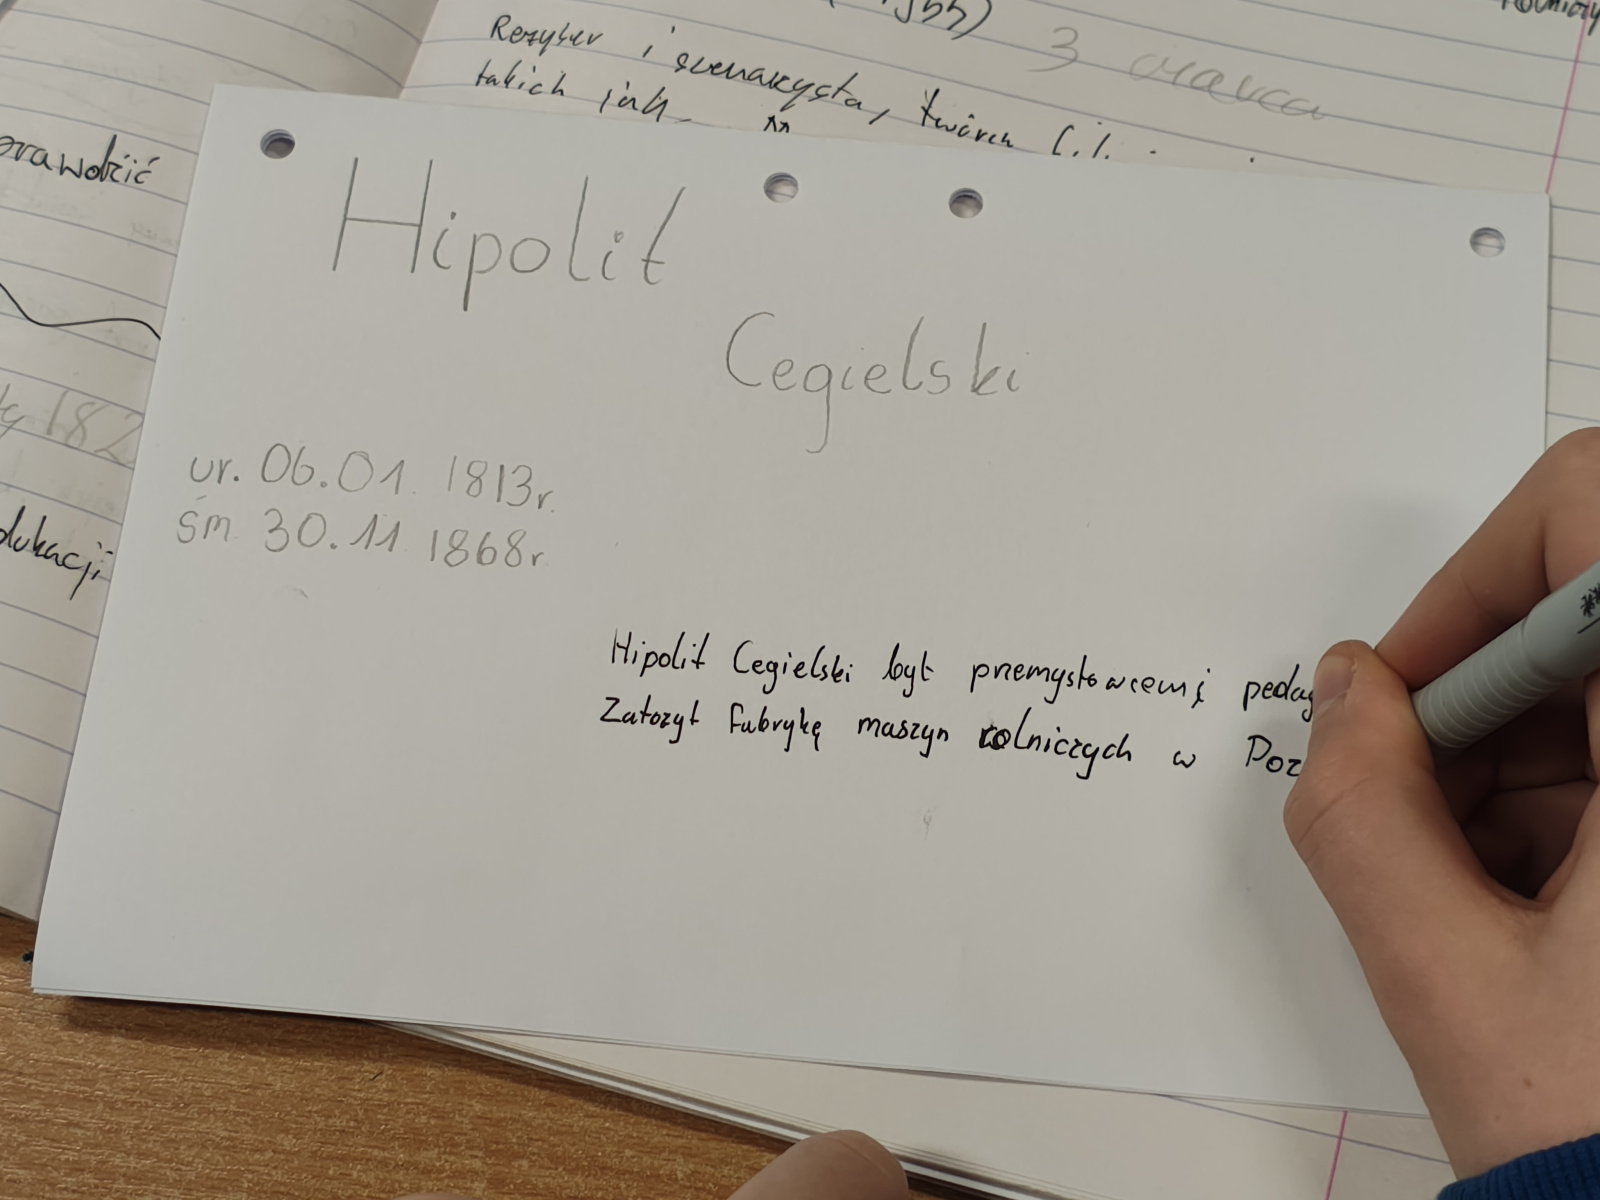 Reżyser i scenarzysta, twórca
takich jak
3 czerwca
prawdzić
182
edukacji
Hipolit
Cegielski
ur. 06.01. 1813r.
śm. 30.11. 1868r.
Hipolit Cegielski był przemysłowcem i pedag
Założył fabrykę maszyn rolniczych w Poz